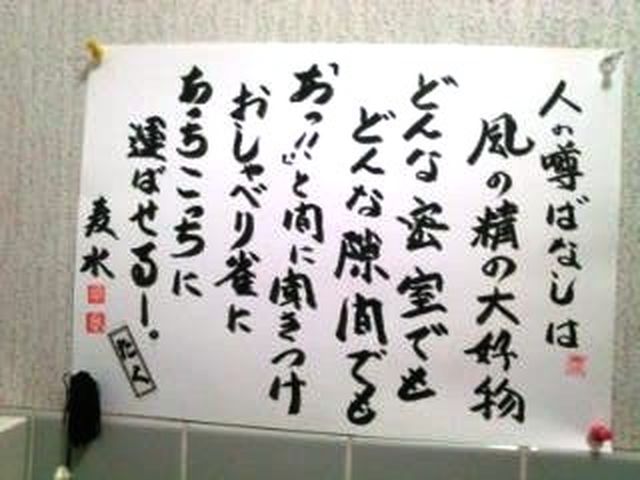 人の噂ばなしは
風の精の大好物
どんな密室でも
どんな隙間でも
おっ!!と間に聞きつけ
おしゃべり雀に
あっちこっちに
運ばせるー。
麦水